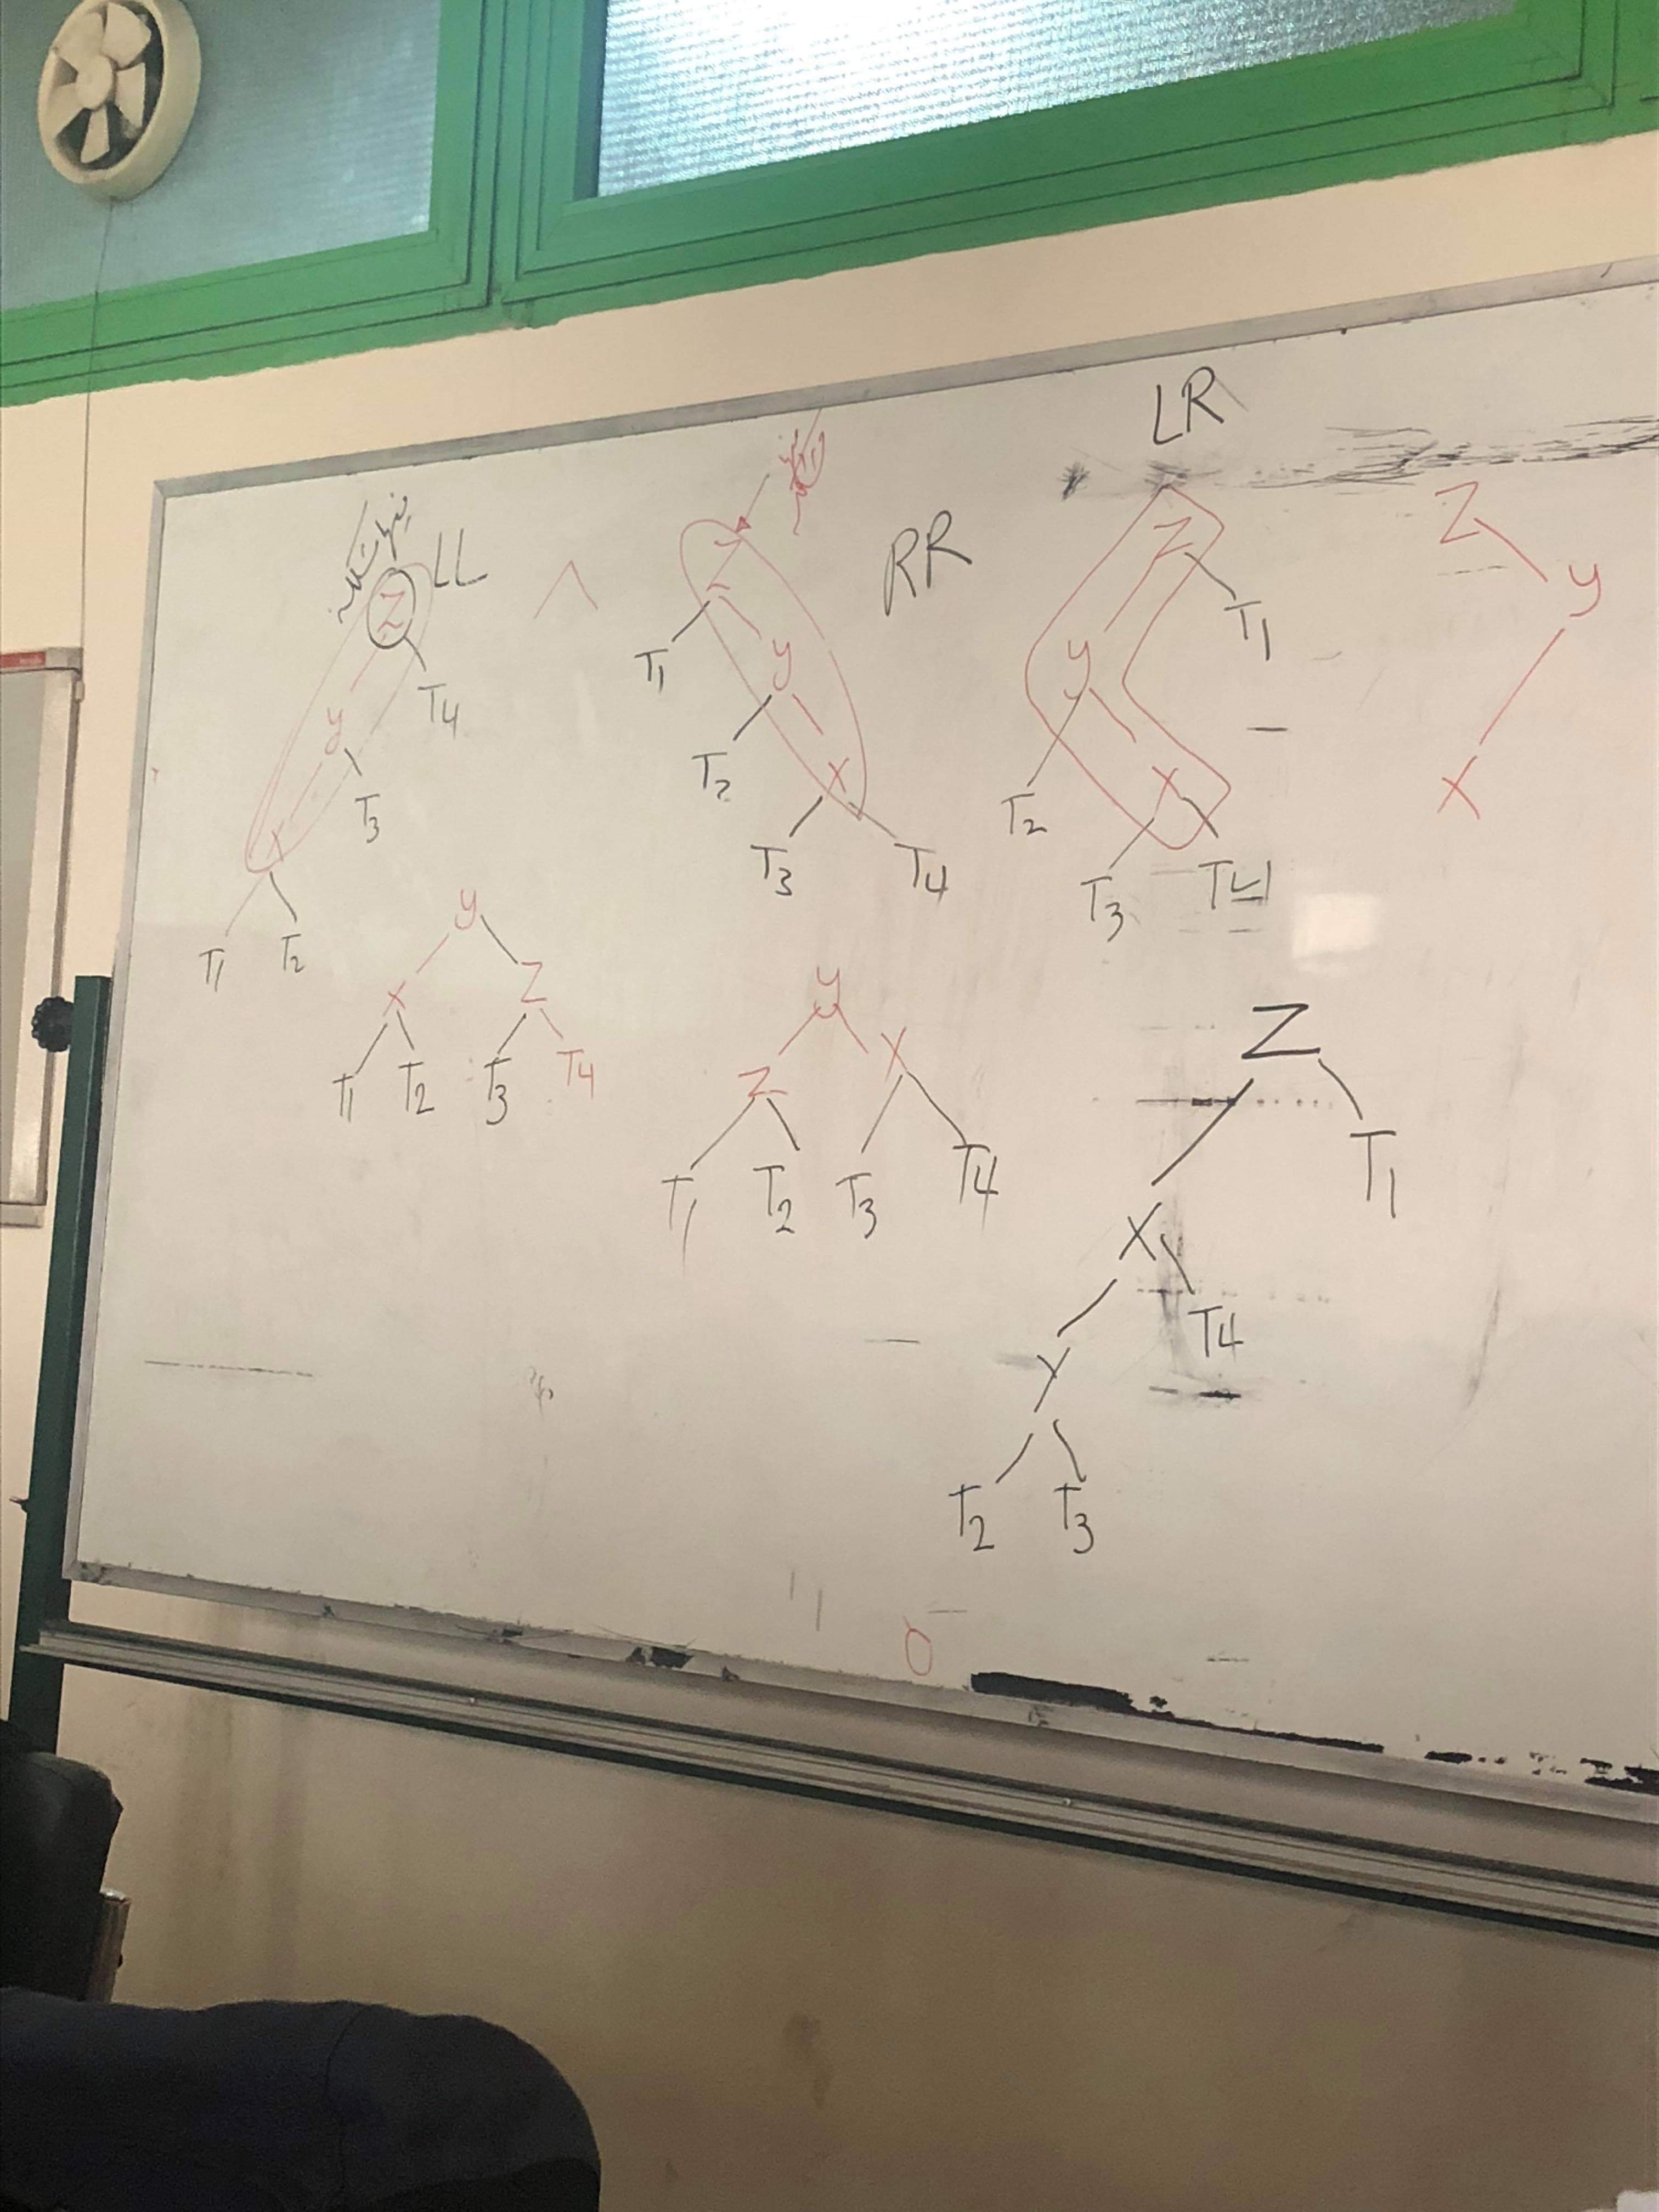 LL
Z
T4
y
T3
X
T1 T2
y
X Z
T1 T2 T3 T4
RR
T1
y
T2
X
T3 T4
y
Z X
T1 T2 T3 T4
LR
Z
T1
y
T2
X
T3 T4
Z
T1
X
T4
Y
T2 T3
Z
y
X